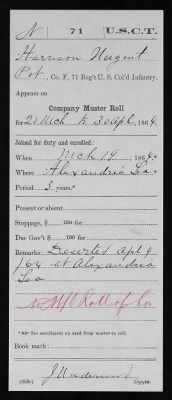 N 71 U.S.C.T.
Harrison Nugent
Pvt., Co. F, 71 Reg't U. S. Col'd Infantry.
Appears on
Company Muster Roll
for 20 Mch to 30 Apl, 1864.
Joined for duty and enrolled:
When Mch 19, 1864.
Where Alexandria La
Period 3 years.*
Present or absent
Stoppage, $ 100 for
Due Gov't $ 100 for
Remarks: Deserted Apl 9
/64 at Alexandria
La
No M/O Roll of Co
*See enrollment on card from muster-in roll.
Book mark:
(358)
Copyist.